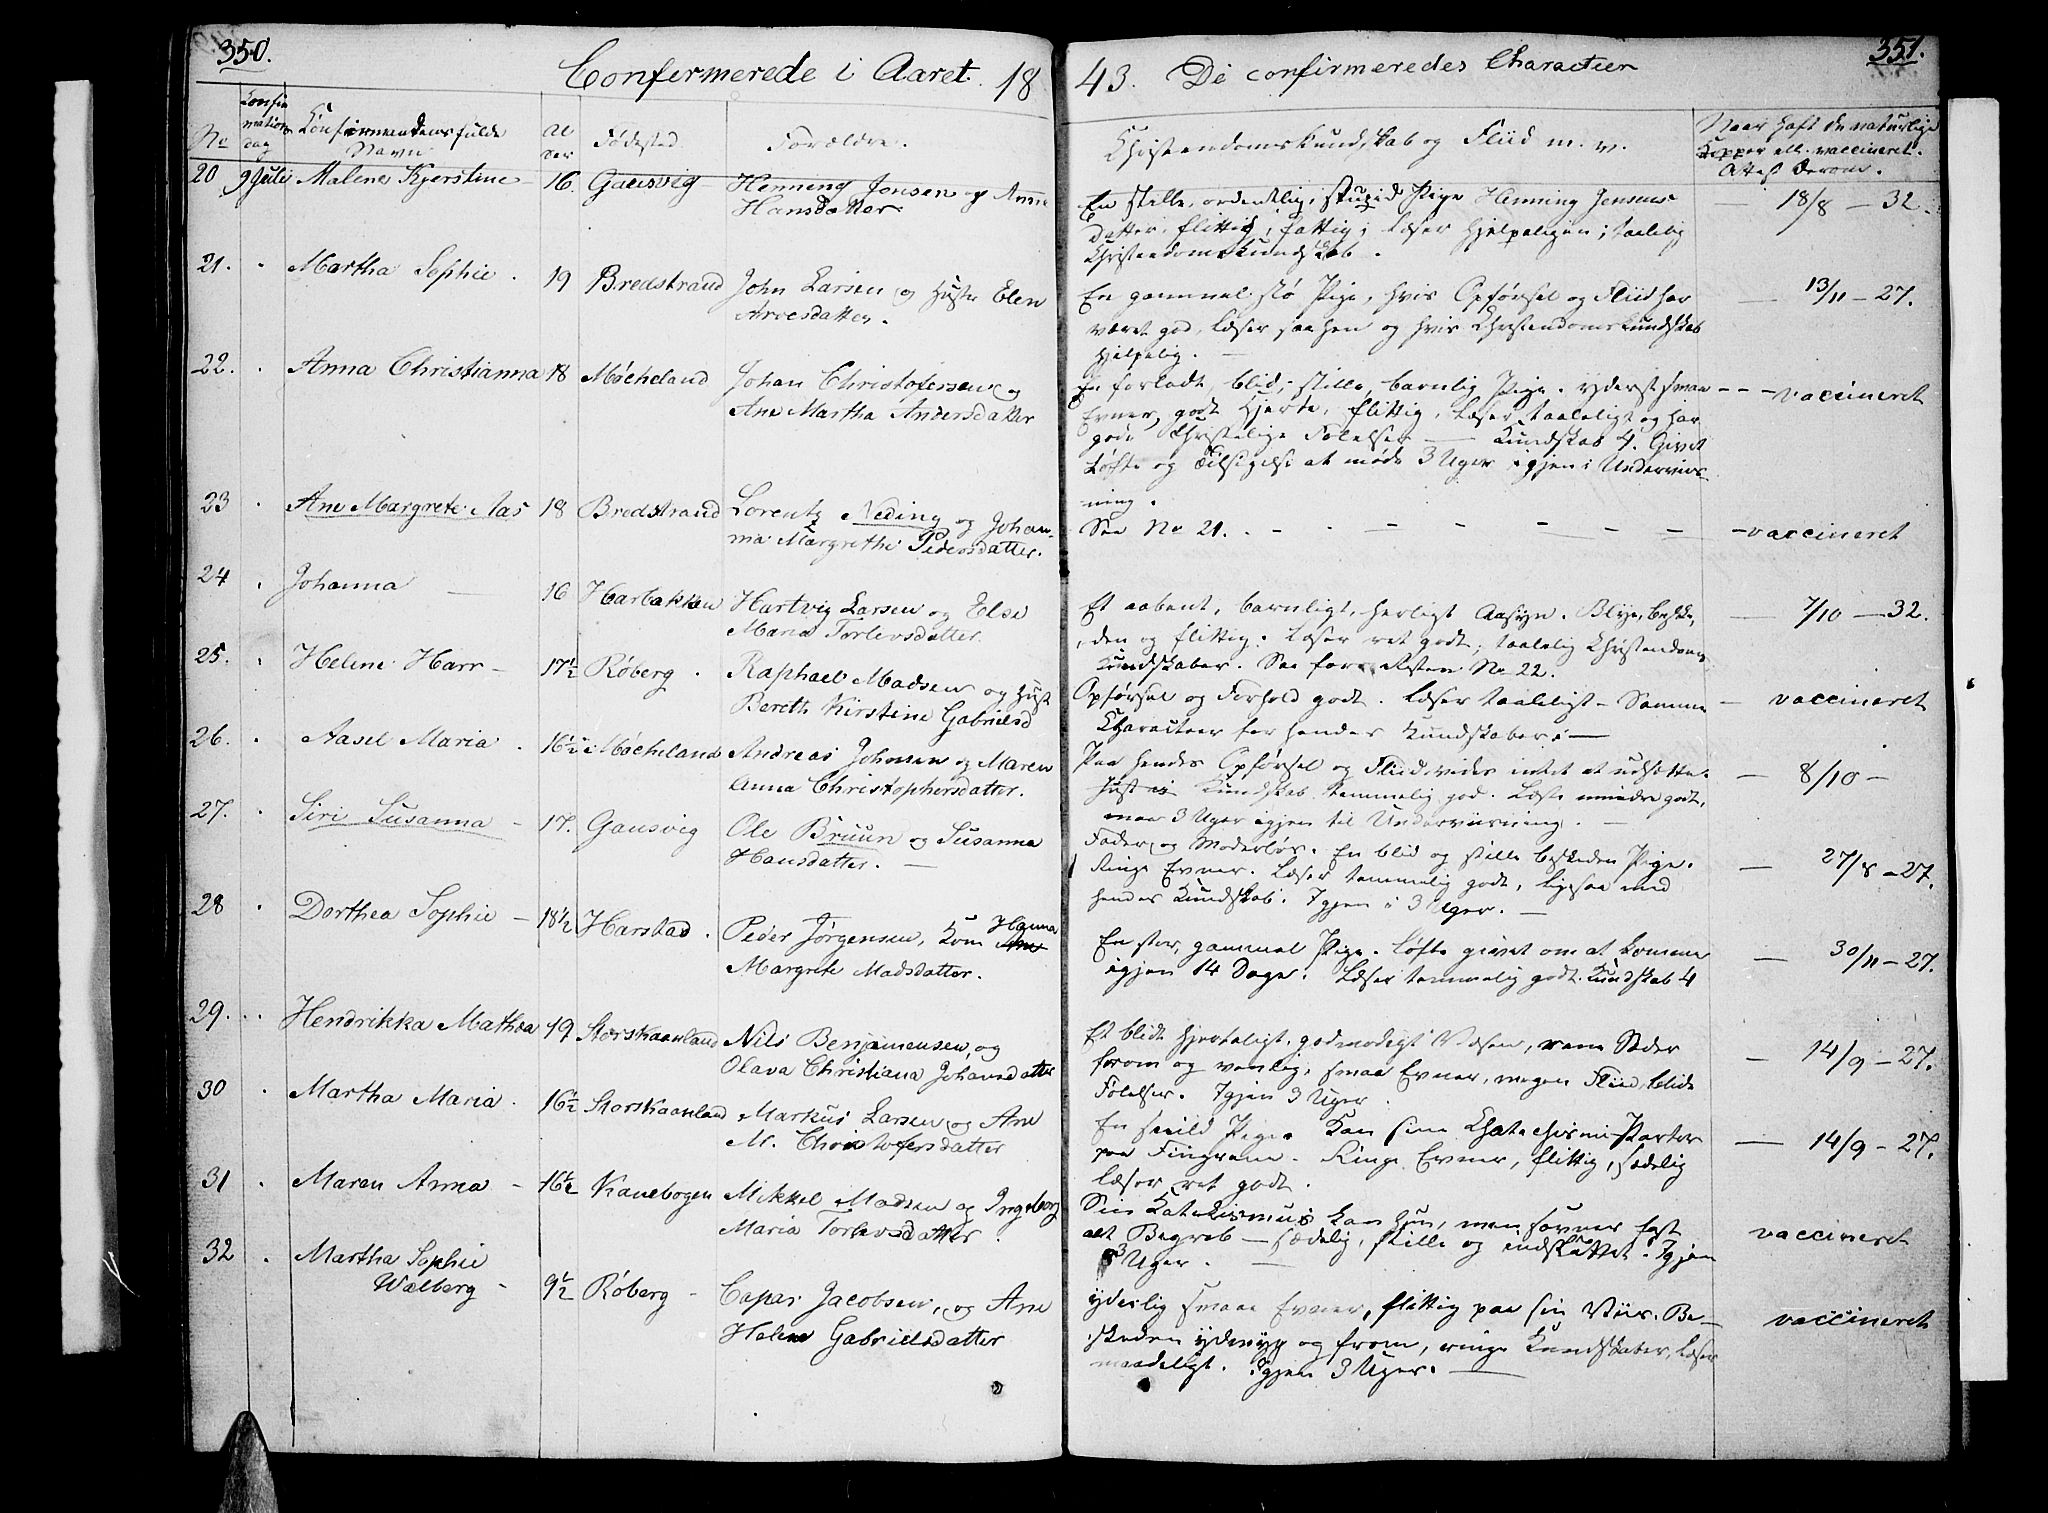 350.
Confirmerede i Aaret 18
No
Konfirmations dag
Konfirmandens fulde Navn
Alder
Fødested
Forældre.
20 9 Juli Malene Kjerstine 16. Gausvig Henning Jensen og Anne
Hansdatter
21. Martha Sophie 19 Bredstrand John Larsen og Hustr Elen
Arvesdatter.
22. Anna Christianna 18 Møcheland Johan Christofersen og
Ane Martha Andersdatter
23 Ane Margrete Aas 18 Bredstrand Lorentz Neding og Johan-
na Margrethe Pedersdatter.
24 Johanna 16 Harbakken Hartvig Larsen og Else
Maria Torlevsdatter
25. Helene Harr 17½ Røberg Raphael Madsen og Hust
Bereth Kirstine Gabrielsd
26. Aasel Maria 16½ Møcheland Andreas Johnsen og Maren
Anna Christophersdatter.
27. Siri Susanna 17. Gausvig Ole Bruun og Susanna
Hansdatter.
28 Dorthea Sophie 18½ Harstad. Peder Jørgensen, Kone Hanna
Margrete Madsdatter.
29. Hendrikka Mathea 19 Storskaanland Nils Benjamensen, og
Olava Christiana Johansdatter
30 Martha Maria 16½ Storskaanland Markus Larsen og Ane
M. Christofersdatter
31 Maren Anna 16½ Kanebogen Mikkel Madsen og Ingeborg
Maria Torlevsdatter.
32 Martha Sophie
Walberg 9½ Røberg Caper Jacobsen, og Ane
Helene Gabrielsdatter
351.
43. De confirmeredes Characteer
Christendomskundskab og Fliid m. v.
Naar haft de naturlige
Kopper ell. vaccineret.
Attest derom.
En stille, ordentlig, stupid Pige Henning Jensens 18/8 - 32.
Datter, flittig, fattig; læser hjelpeligen; taalelig
Christendomskundskab.
En gammel, slø Pige, hvis Opførsel og Fliid har 13/11 - 27.
været god, læser saa hen og hvis Christendomskundskab
hjelpelig.
En forladt, blid, stille, barnlig Pige. yderst smaa vaccineret
Evner, godt Hjerte, flittig, læser taaleligt og har
gode Christelige Følelser Kundskab 4. Givet
Løfte og Tilsigelse at møde 3 Uger igjen i Underviis-
ning.
Saa No 21. - vaccineret
Et aabent, barnligt, herligt Aasyn. Blye, beske, 7/10 - 32.
den og flittig. Læser ret godt, taalelig Christendoms
kundskaber. Saa for Resten No 22.
Opførsel og Forhold godt. læser taaleligt - Samme - vaccineret
Characteer for hendes Kundskaber.
Paa hendes Opførsel og Fliid vides intet at udsætte. 8/10 -
Kundskab temmelig god. Læse mindre godt,
maa 3 Uger igjen til Underviisning.
Fader og Moderløs. En blid og stille beskeden Pige. 27/8 - 27.
Ringe Evner. Læser temmelig godt, ligesaa med
hendes Kundskab. Igjen i 3 Uger.
En stor, gammel Pige. Løfte givet om at komme 30/11 - 27.
igjen 14 Dage. Læser temmelig godt. Kundskab 4
Et blidt hjerteligt, godmodigt Væsen, rene Sæder 14/9 - 27.
from og venlig, smaa Evner, megen Fliid, blide
Følelser. Igjen 3 Uger.
En snild Pige. Kan sine Chatechismi Parter 14/9 - 27.
paa Fingrene. Ringe Evner, flittig, sædelig
læser ret godt.
Sin Katekismus kan hun, men savner fast vaccineret
alt Begreb - sædelig, stille og indskrænket. Igjen
3 Uger.
yderlig smaae Evner, flittig paa sin Viis. Be- vaccineret
skeden ydmyg og from, ringe Kundskaber, læser
maadeligt. Igjen 3 Uger.